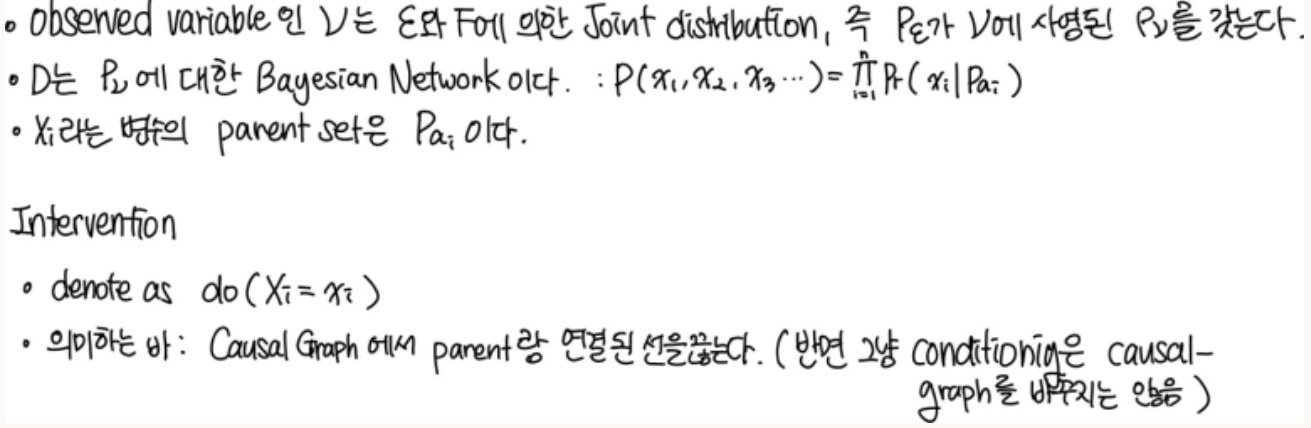 • observed variable 인 V는 ε와 F에 의한 Joint distribution, 즉 Pε가 V에 사영된 Pv를 갖는다.
• D는 Pv에 대한 Bayesian Network이다. : P(x₁, x₂, x₃ ⋯) = ∏ⁿᵢ₌₁ Pr(xᵢ | Paᵢ)
• Xᵢ라는 변수의 parent set은 Paᵢ이다.
Intervention
• denote as do(Xᵢ = xᵢ)
• 의미하는 바 : Causal Graph에서 parent랑 연결된 선을 끊는다. (반면 그냥 conditionig은 causal-
graph를 바꾸지는 않음)